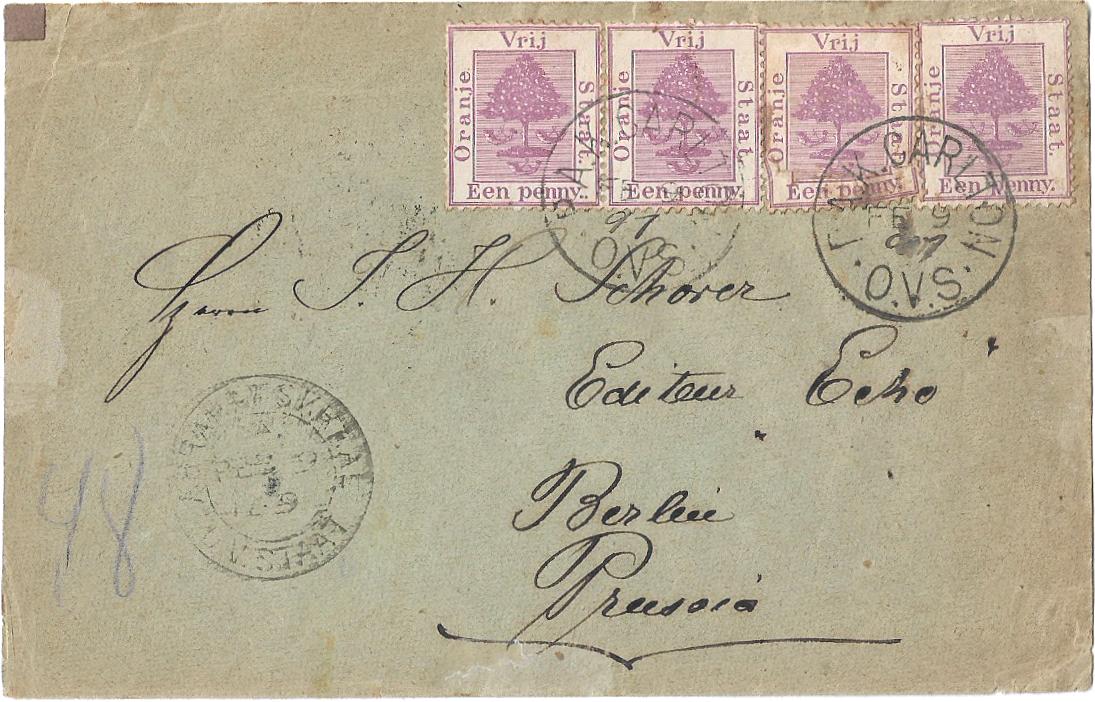 Vrij
Oranje
Staat.
Een penny.
Vrij
Oranje
Staat.
Een penny.
Vrij
Oranje
Staat.
Een penny.
Vrij
Oranje
Staat.
Een Penny.
97
O.V.S.
P.A.K. CARLTON
FE 9
97
O.V.S.
Herrn J. H. Schorer
Editeur Echo
Berlin
Prussia
48